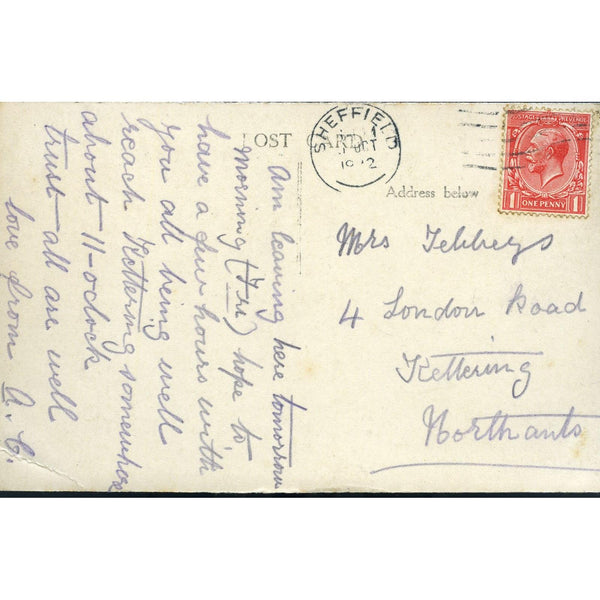 POST CARD
SHEFFIELD
OCT
19 2
POSTAGE REVENUE
ONE PENNY
1 1
Address below
Am leaving here tomorrow
morning (Fri) hope to
have a few hours with
you all being well
reach Kettering somewhere
about 11-oclock
trust all are well
love from A. C.
Mrs Tebbeys
4 London Road
Kettering
Northants